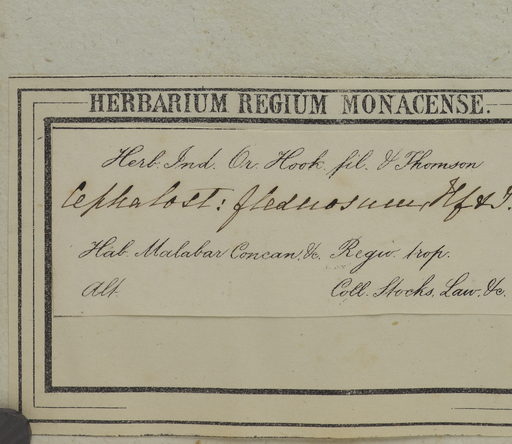 HERBARIUM REGIUM MONACENSE.
Herb. Ind. Or. Hook. fil. & Thomson
Cephalost: flexuosum, Hf & T.
Hab. Malabar Concan, &c. Regio. trop.
Alt. Coll. Stocks, Law, &c.